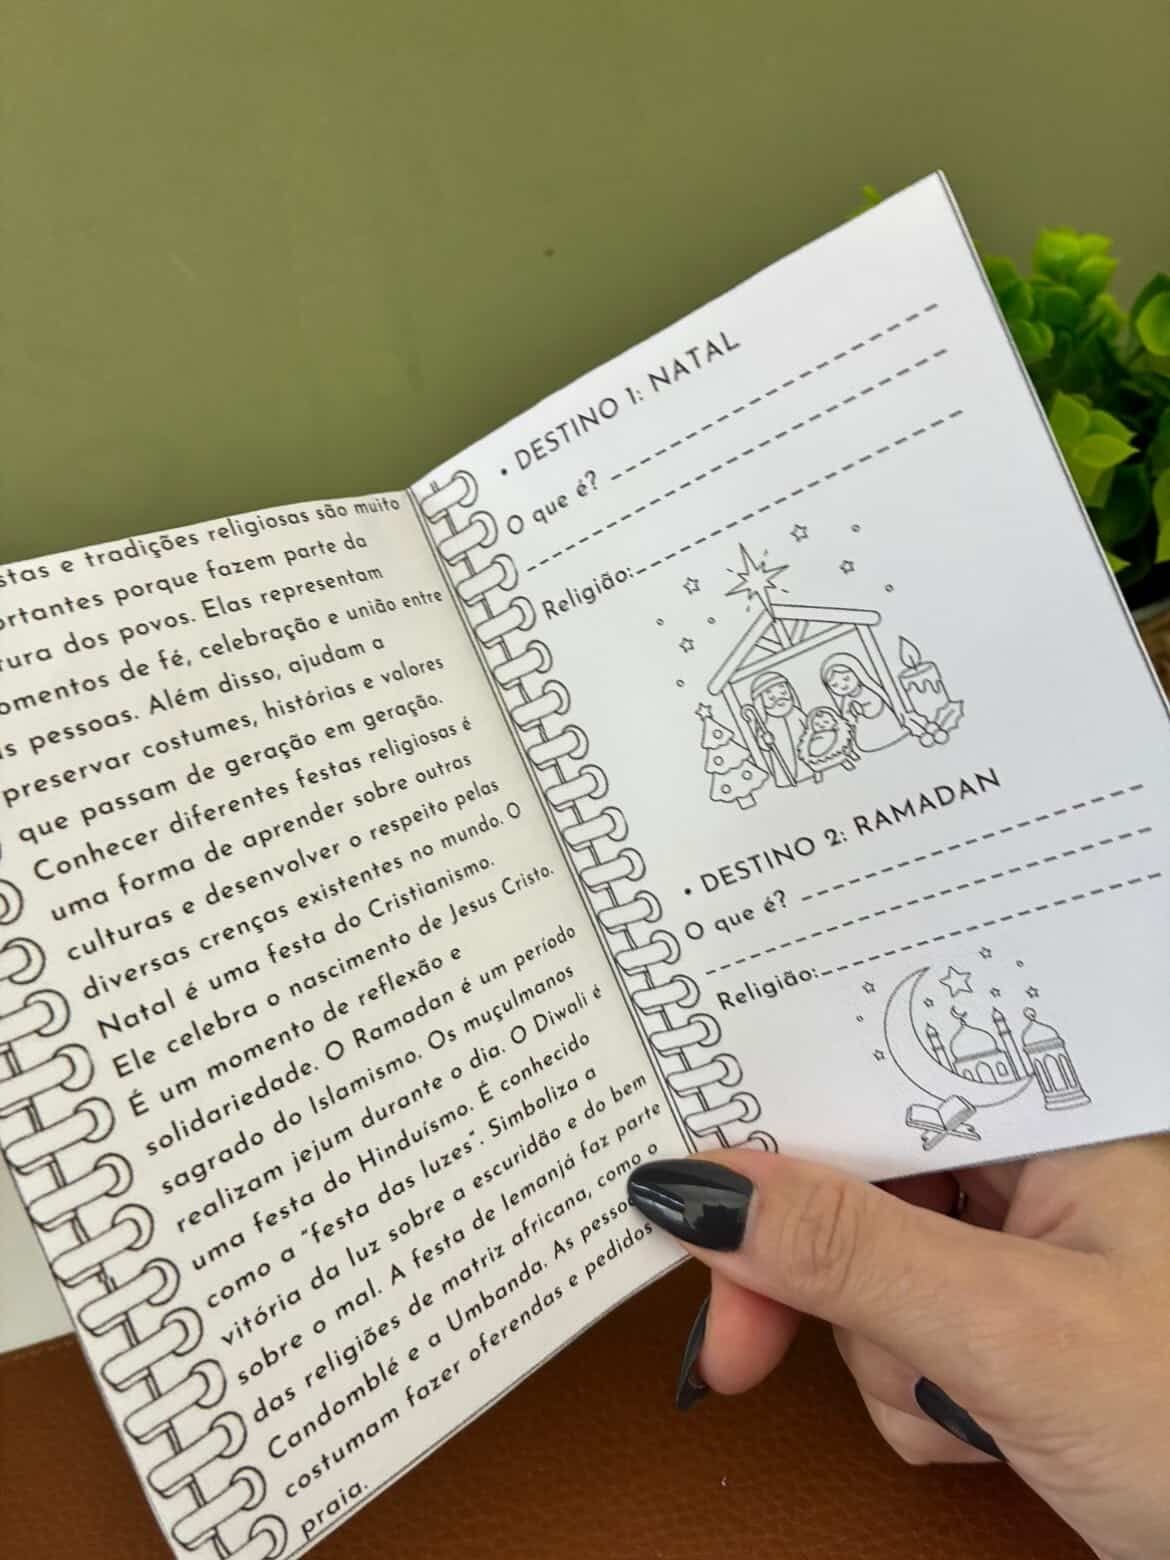 stas e tradições religiosas são muito
ortantes porque fazem parte da
tura dos povos. Elas representam
omentos de fé, celebração e união entre
s pessoas. Além disso, ajudam a
preservar costumes, histórias e valores
que passam de geração em geração.
Conhecer diferentes festas religiosas é
uma forma de aprender sobre outras
culturas e desenvolver o respeito pelas
diversas crenças existentes no mundo. O
Natal é uma festa do Cristianismo.
Ele celebra o nascimento de Jesus Cristo.
É um momento de reflexão e
solidariedade. O Ramadan é um período
sagrado do Islamismo. Os muçulmanos
realizam jejum durante o dia. O Diwali é
uma festa do Hinduísmo. É conhecido
como a "festa das luzes". Simboliza a
vitória da luz sobre a escuridão e do bem
sobre o mal. A festa de Iemanjá faz parte
das religiões de matriz africana, como o
Candomblé e a Umbanda. As pesso
costumam fazer oferendas e pedidos
praia.
• DESTINO 1: NATAL
O que é?
Religião:
• DESTINO 2: RAMADAN
O que é?
Religião: